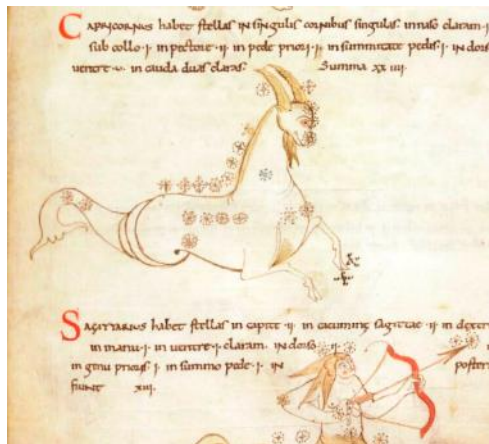 CAPRICORNUS habet stellas IN singulis cornibus singulas. in naso claram. I
sub collo. II. in pectore. II. in pede priori. II. in summitate pedis. I. IN dors
ventre. V. in cauda duas claras. Summa XX IIII.
SAGITTARIUS habet stellas in capite. II. in cacumine sagittae. II. in dextr
in manu. I. in ventre. I. claram. IN dorso. II.
in genu priori. I. in summo pede. I. IN poster
fiunt XIII.